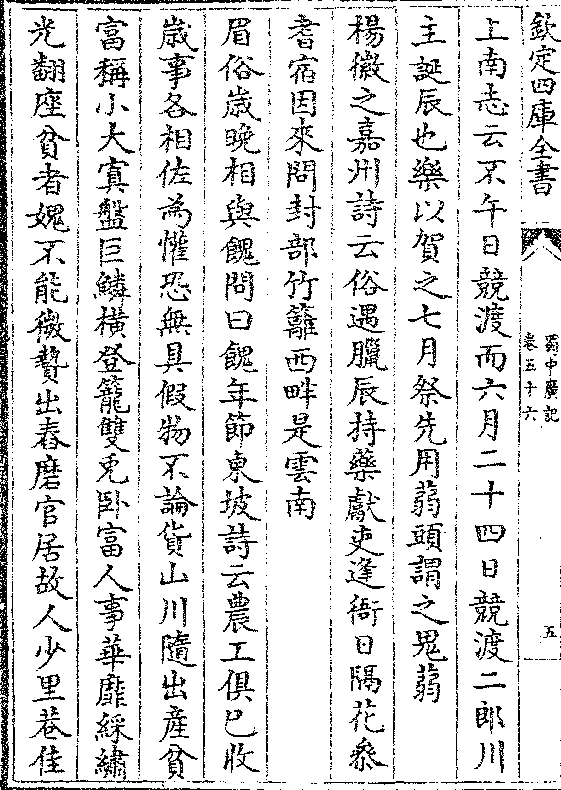 欽定四庫全書
蜀中廣記
卷五十六
五
上南志云不午日競渡而六月二十四日競渡二郎川
主誕辰也樂以賀之七月祭先用蒻頭謂之鬼蒻
楊徽之嘉州詩云俗遇臘辰持藥獻吏逢衙日隔花參
耆宿因來問封部竹籬西畔是雲南
眉俗歲晚相與餽問曰餽年節東坡詩云農工俱已收
歲事各相佐為懽恐無具假物不論貨山川隨出產貧
富稱小大寘盤巨鱗橫登籠雙兎卧富人事華靡綵繡
光翻座貧者媿不能微贄出舂磨官居故人少里巷佳